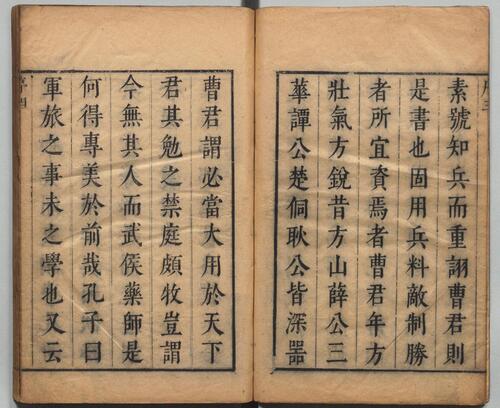 素號知兵而重詡曹君則
是書也固用兵料敵制勝
者所宜資焉者曹君年方
壯氣方銳昔方山薛公三
華譚公楚侗耿公皆深噐
曹君謂必當大用於天下
君其勉之禁庭頗牧豈謂
今無其人而武侯藥師是
何得專美於前哉孔子曰
軍旅之事未之學也又云